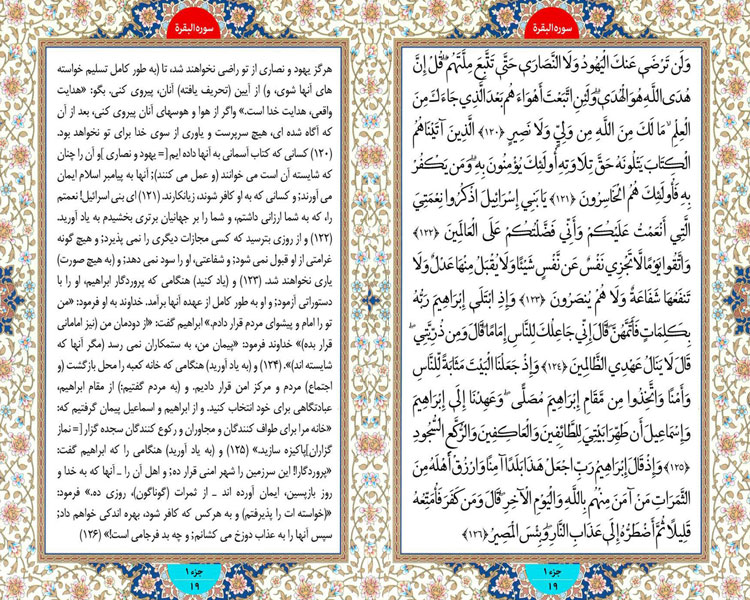 سورهالبقرة
وَلَن تَرْضَىٰ عَنكَ الْيَهُودُ وَلَا النَّصَارَىٰ حَتَّىٰ تَتَّبِعَ مِلَّتَهُمْ ۗ قُلْ إِنَّ
هُدَى اللَّهِ هُوَ الْهُدَىٰ ۗ وَلَئِنِ اتَّبَعْتَ أَهْوَاءَهُم بَعْدَ الَّذِي جَاءَكَ مِنَ
الْعِلْمِ ۙ مَا لَكَ مِنَ اللَّهِ مِن وَلِيٍّ وَلَا نَصِيرٍ ﴿١٢٠﴾ الَّذِينَ آتَيْنَاهُمُ
الْكِتَابَ يَتْلُونَهُ حَقَّ تِلَاوَتِهِ أُولَٰئِكَ يُؤْمِنُونَ بِهِ ۗ وَمَن يَكْفُرْ
بِهِ فَأُولَٰئِكَ هُمُ الْخَاسِرُونَ ﴿١٢١﴾ يَا بَنِي إِسْرَائِيلَ اذْكُرُوا نِعْمَتِيَ
الَّتِي أَنْعَمْتُ عَلَيْكُمْ وَأَنِّي فَضَّلْتُكُمْ عَلَى الْعَالَمِينَ ﴿١٢٢﴾
وَاتَّقُوا يَوْمًا لَّا تَجْزِي نَفْسٌ عَن نَّفْسٍ شَيْئًا وَلَا يُقْبَلُ مِنْهَا عَدْلٌ وَلَا
تَنفَعُهَا شَفَاعَةٌ وَلَا هُمْ يُنصَرُونَ ﴿١٢٣﴾ وَإِذِ ابْتَلَىٰ إِبْرَاهِيمَ رَبُّهُ
بِكَلِمَاتٍ فَأَتَمَّهُنَّ ۖ قَالَ إِنِّي جَاعِلُكَ لِلنَّاسِ إِمَامًا ۖ قَالَ وَمِن ذُرِّيَّتِي ۖ
قَالَ لَا يَنَالُ عَهْدِي الظَّالِمِينَ ﴿١٢٤﴾ وَإِذْ جَعَلْنَا الْبَيْتَ مَثَابَةً لِّلنَّاسِ
وَأَمْنًا وَاتَّخِذُوا مِن مَّقَامِ إِبْرَاهِيمَ مُصَلًّى ۖ وَعَهِدْنَا إِلَىٰ إِبْرَاهِيمَ
وَإِسْمَاعِيلَ أَن طَهِّرَا بَيْتِيَ لِلطَّائِفِينَ وَالْعَاكِفِينَ وَالرُّكَّعِ السُّجُودِ
﴿١٢٥﴾ وَإِذْ قَالَ إِبْرَاهِيمُ رَبِّ اجْعَلْ هَٰذَا بَلَدًا آمِنًا وَارْزُقْ أَهْلَهُ مِنَ
الثَّمَرَاتِ مَنْ آمَنَ مِنْهُم بِاللَّهِ وَالْيَوْمِ الْآخِرِ ۖ قَالَ وَمَن كَفَرَ فَأُمَتِّعُهُ
قَلِيلًا ثُمَّ أَضْطَرُّهُ إِلَىٰ عَذَابِ النَّارِ ۖ وَبِئْسَ الْمَصِيرُ ﴿١٢٦﴾
جزء ۱
۱۹
سورهالبقرة
هرگز یهود و نصاری از تو راضی نخواهند شد، تا (به طور کامل تسلیم خواسته
های آنها شوی، و) از آیین (تحریف یافته) آنان، پیروی کنی. بگو: «هدایت
واقعی، هدایت خدا است.» واگر از هوا و هوسهای آنان پیروی کنی، بعد از آن
که آگاه شده ای، هیچ سرپرست و یاوری از سوی خدا برای تو نخواهد بود.
(۱۲۰) کسانی که کتاب آسمانی به آنها داده ایم [= یهود و نصاری ]و آن را چنان
که شایسته آن است می خوانند (و عمل می کنند)؛ آنها به پیامبر اسلام ایمان
می آورند؛ و کسانی که به او کافر شوند، زیانکارند. (۱۲۱) ای بنی اسرائیل! نعمتم
را، که به شما ارزانی داشتم، و شما را بر جهانیان برتری بخشیدم به یاد آورید.
(۱۲۲) و از روزی بترسید که کسی مجازات دیگری را نمی پذیرد؛ و هیچ گونه
غرامتی از او قبول نمی شود؛ و شفاعتی، او را سود نمی دهد؛ و (به هیچ صورت)
یاری نخواهند شد. (۱۲۳) و (یاد کنید) هنگامی که پروردگار ابراهیم، او را با
دستوراتی آزمود؛ و او به طور کامل از عهده آنها برآمد. خداوند به او فرمود: «من
تو را امام و پیشوای مردم قرار دادم.» ابراهیم گفت: «از دودمان من (نیز امامانی
قرار بده)» خداوند فرمود: «پیمان من، به ستمکاران نمی رسد (مگر آنها که
شایسته اند)». (۱۲۴) و (به یاد آورید) هنگامی که خانه کعبه را محل بازگشت (و
اجتماع) مردم و مرکز امن قرار دادیم. و (به مردم گفتیم:) از مقام ابراهیم،
عبادتگاهی برای خود انتخاب کنید. و از ابراهیم و اسماعیل پیمان گرفتیم که:
«خانه مرا برای طواف کنندگان و مجاوران و رکوع کنندگان سجده گزار [= نماز
گزاران]پاکیزه سازید.» (۱۲۵) و (به یاد آورید) هنگامی را که ابراهیم گفت:
«پروردگارا! این سرزمین را شهر امنی قرار ده؛ و اهل آن را ـ آنها که به خدا و
روز بازپسین، ایمان آورده اند ـ از ثمرات (گوناگون)، روزی ده.» فرمود:
«(خواسته ات را پذیرفتم) و به هرکس که کافر شود، بهره اندکی خواهم داد؛
سپس آنها را به عذاب دوزخ می کشانم؛ و چه بد فرجامی است!» (۱۲۶)
جزء ۱
۱۹